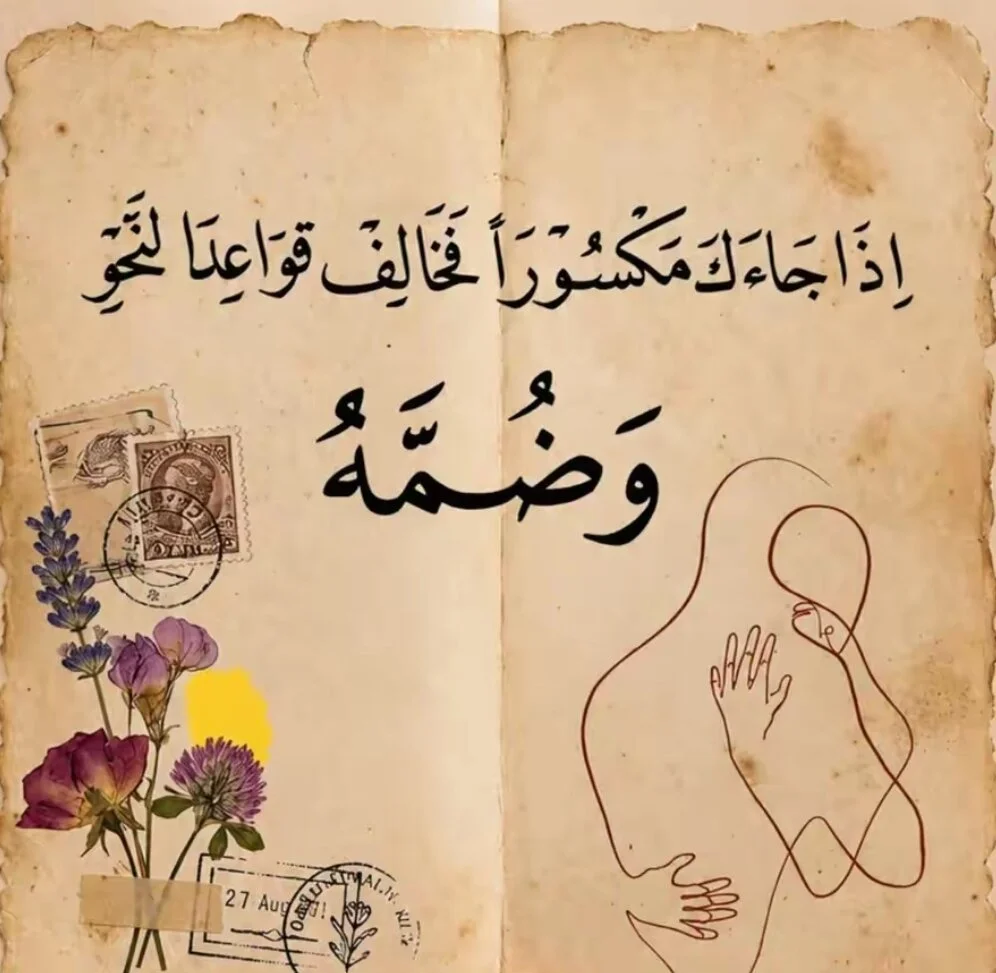 إِذَا جَاءَكَ مَكْسُوْرَاً فَخَالِفْ قوَاعِدَا لنَّحْوِ
وَضُمَّهُ
27 Aug